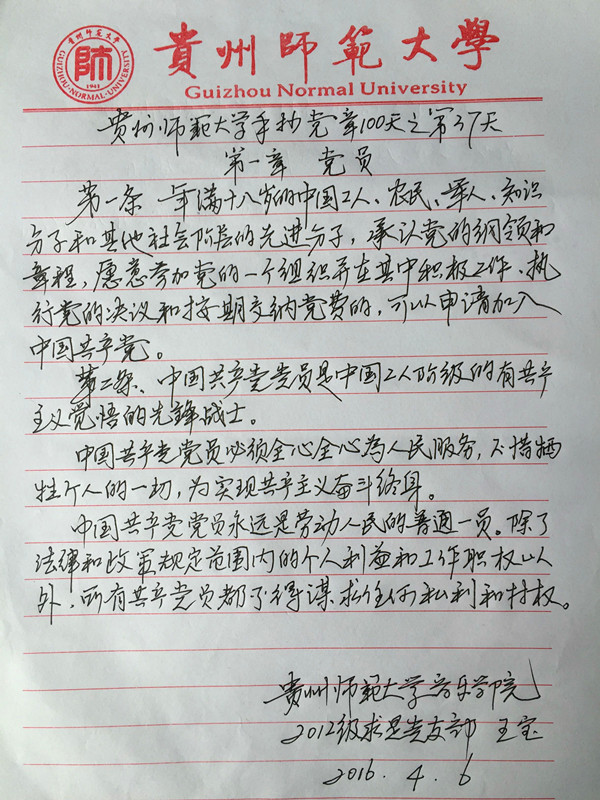 貴州師範大學
Guizhou Normal University
貴州師範大學
師
1941
GUIZHOU·NORMAL·UNIVERSITY
贵州师范大学手抄党章100天之第37天
第一章 党员
第一条 年满十八岁的中国工人、农民、军人、知识
分子和其他社会阶层的先进分子，承认党的纲领和
章程，愿意参加党的一个组织并在其中积极工作、执
行党的决议和按期交纳党费的，可以申请加入
中国共产党。
第二条、中国共产党党员是中国工人阶级的有共产
主义觉悟的先锋战士。
中国共产党党员必须全心全心为人民服务，不惜牺
牲个人的一切，为实现共产主义奋斗终身。
中国共产党党员永远是劳动人民的普通一员。除了
法律和政策规定范围内的个人利益和工作职权以
外，所有共产党员都不得谋求任何私利和特权。
贵州师范大学音乐学院
2012级求是党支部 王宝
2016.4.6